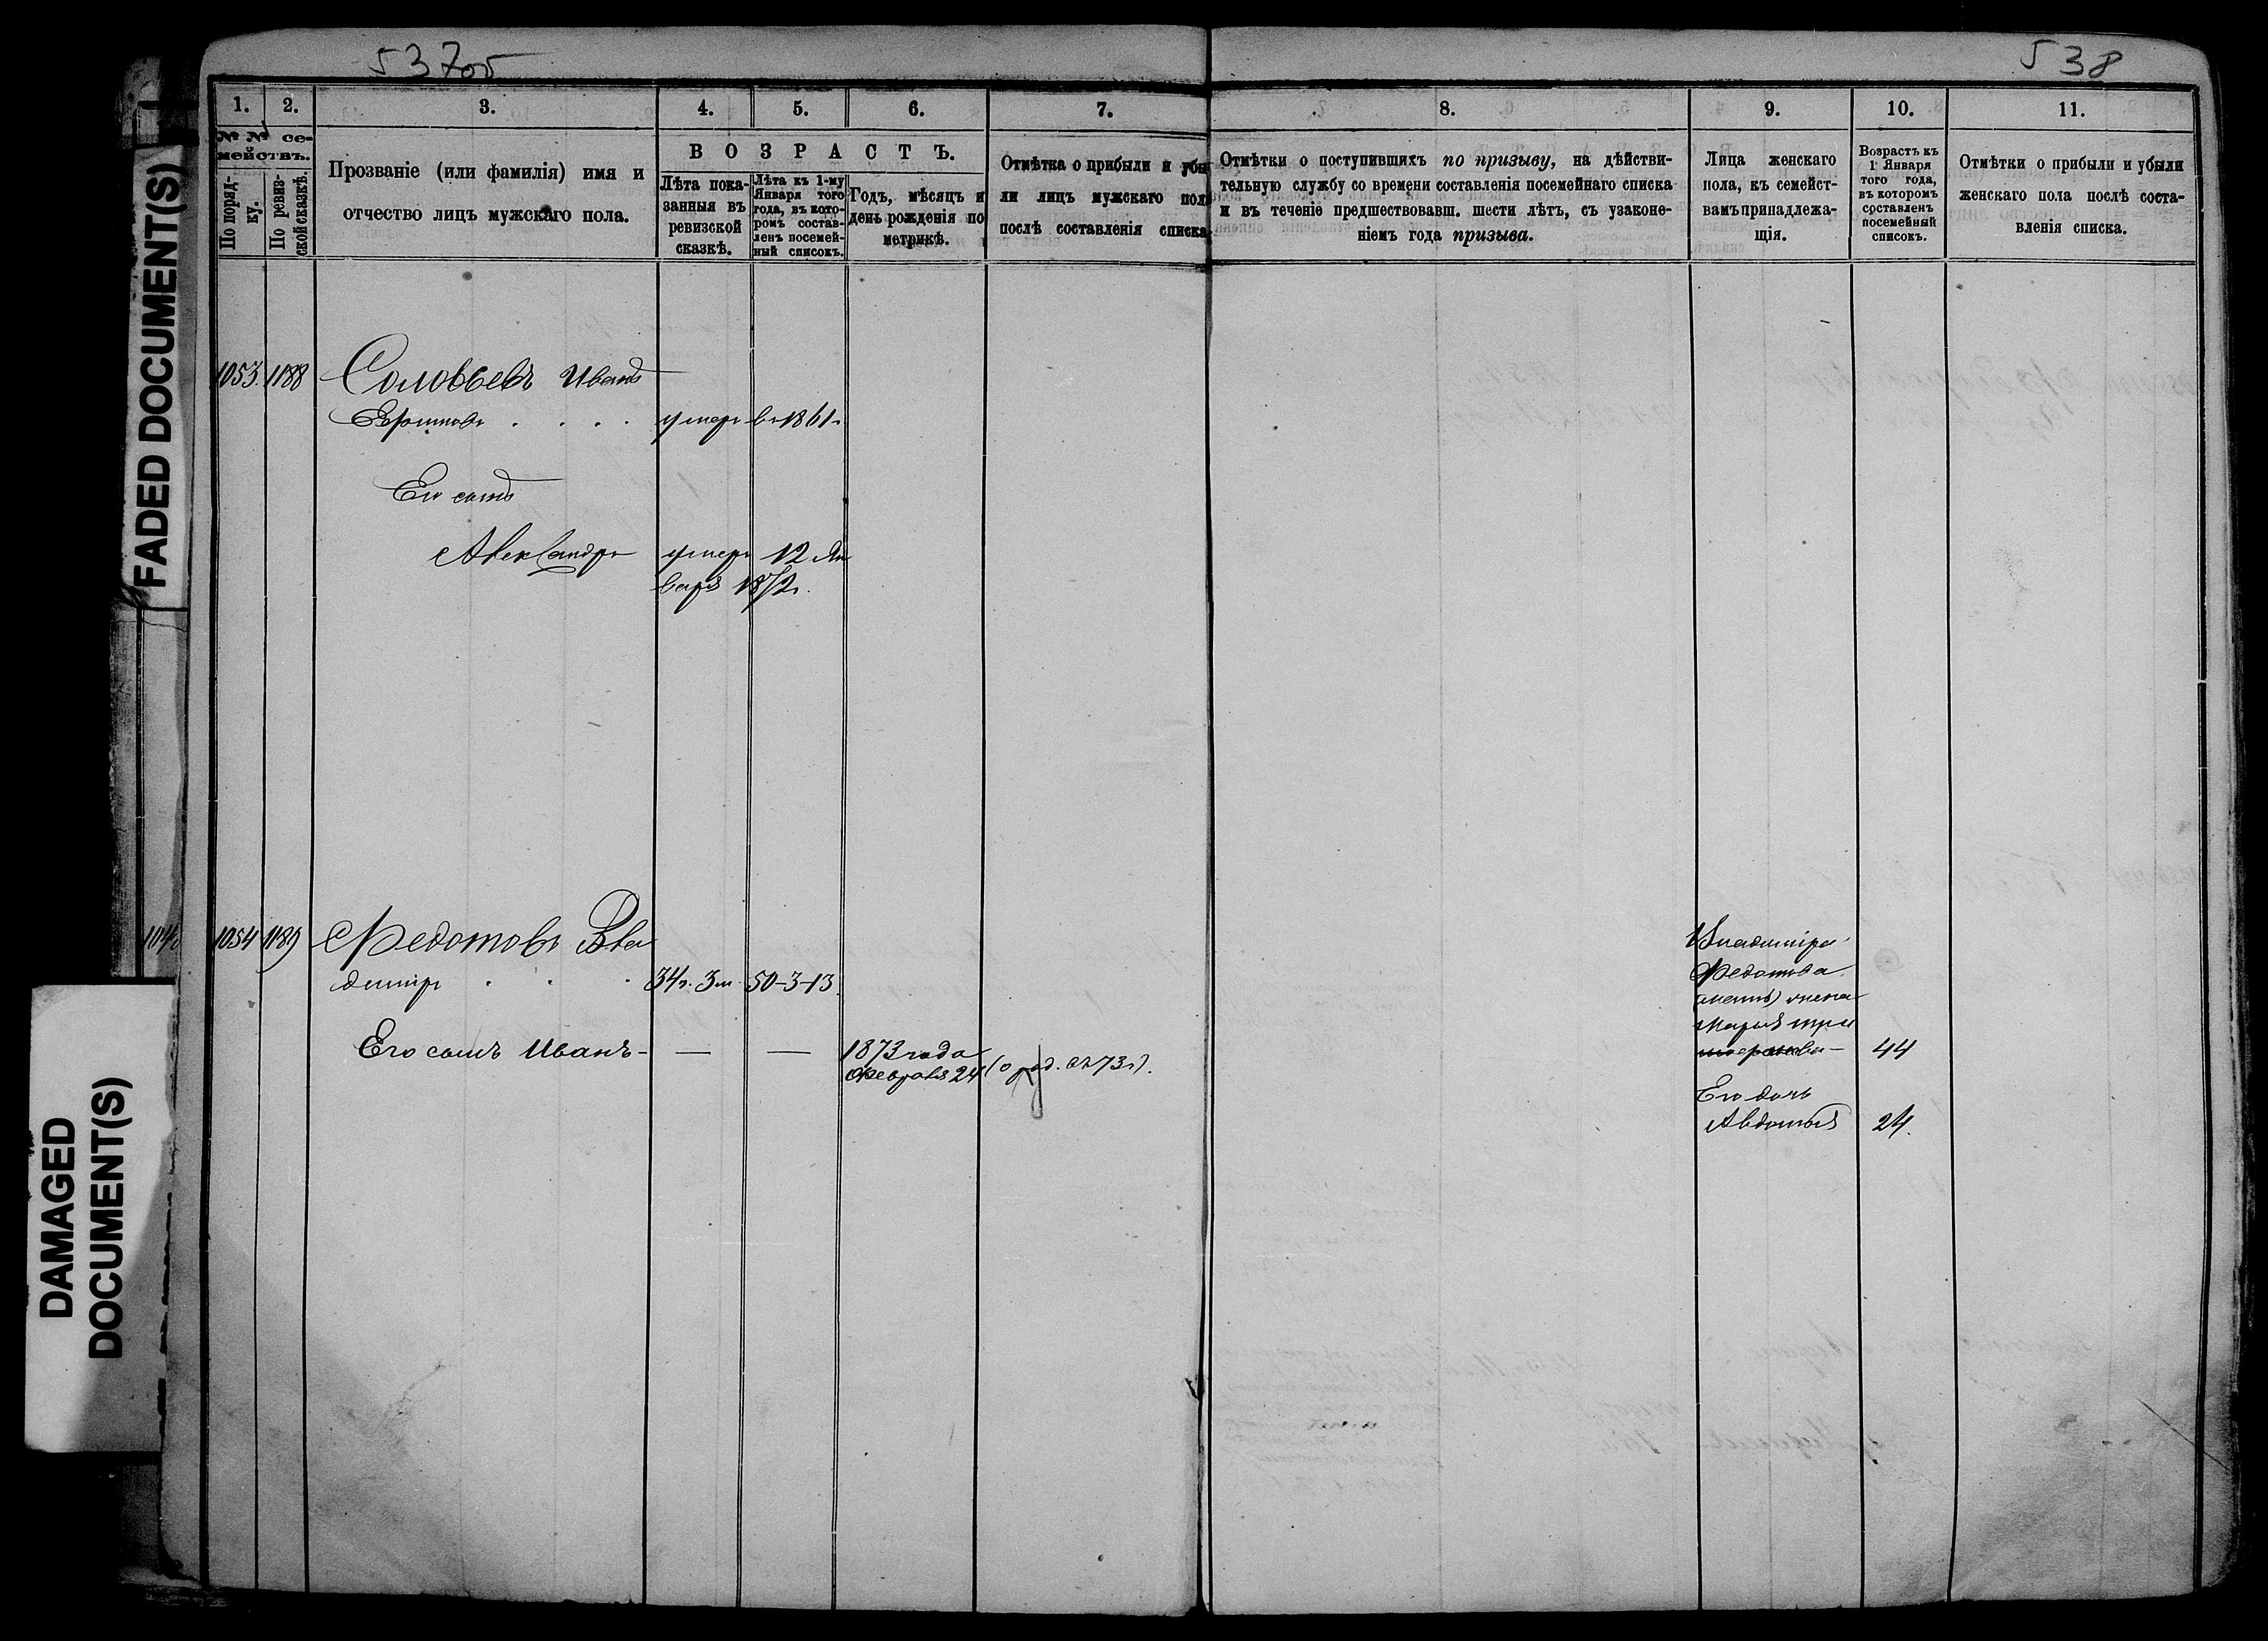 537об
538
FADED DOCUMENT(S)
DAMAGED
DOCUMENT(S)
1.
2.
3.
4.
5.
6.
7.
8.
9.
10.
11.
№ № се-
мействъ.
По поряд-
ку.
По ревиз-
ской сказкѣ.
Прозваніе (или фамилія) имя и
отчество лицъ мужскаго пола.
ВОЗРАСТЪ.
Лѣта пока-
занныя въ
ревизской
сказкѣ.
Лѣта къ 1-му
Января того
года, въ кото-
ромъ состав-
ленъ посемей-
ный списокъ.
Годъ, мѣсяцъ и
день рожденія по
метрикѣ.
Отмѣтка о прибыли и убы-
ли лицъ мужскаго пола
послѣ составленія списка
Отмѣтки о поступившихъ по призыву, на дѣйстви-
тельную службу со времени составленія посемейнаго списка
и въ теченіе предшествовавш. шести лѣтъ, съ узаконе-
ніемъ года призыва.
Лица женскаго
пола, къ семейст-
вамъ принадлежа-
щія.
Возрастъ къ
1 Января
того года,
въ которомъ
составленъ
посемейный
списокъ.
Отмѣтки о прибыли и убыли
женскаго пола послѣ соста-
вленія списка.
1053. 1188 Соловьевъ Иванъ
умеръ въ 1861г
Его сынъ
Александръ умеръ 12 Ян
варя 1872г.
1054 1189 Федотовъ Вла
димiръ 34г. 3м. 50-3-13.
Его сынъ Иванъ - — — 1873 года
Февраля 24
Владимiра
Федотова
жена
Марья
44
Его дочь
Авдотья 24.